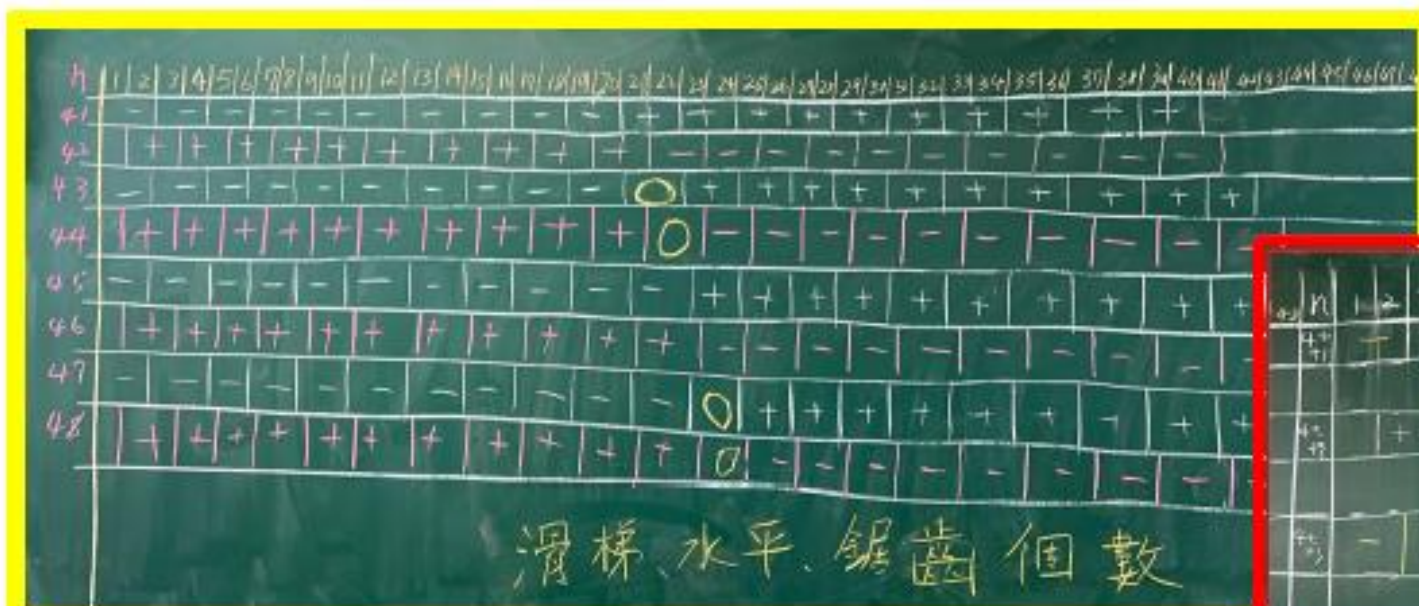 n 1 2 3 4 5 6 7 8 9 10 11 12 13 14 15 16 17 18 19 20 21 22 23 24 25 26 27 28 29 30 31 32 33 34 35 36 37 38 39 40 41 42 43 44 45 46 47
41 - - - - - - - - - - + + + + + + + + + +
42 + + + + + + + + + + - - - - - - - - - -
43 - - - - - - - - - - O + + + + + + + + + +
44 + + + + + + + + + + O - - - - - - - - - -
45 - - - - - - - - - - - + + + + + + + + + +
46 + + + + + + + + + + + - - - - - - - - - -
47 - - - - - - - - - - - O + + + + + +
48 + + + + + + + + + + + O - - - - - - - -
滑梯、水平、鋸齒個數
n 1 2
-
+
-